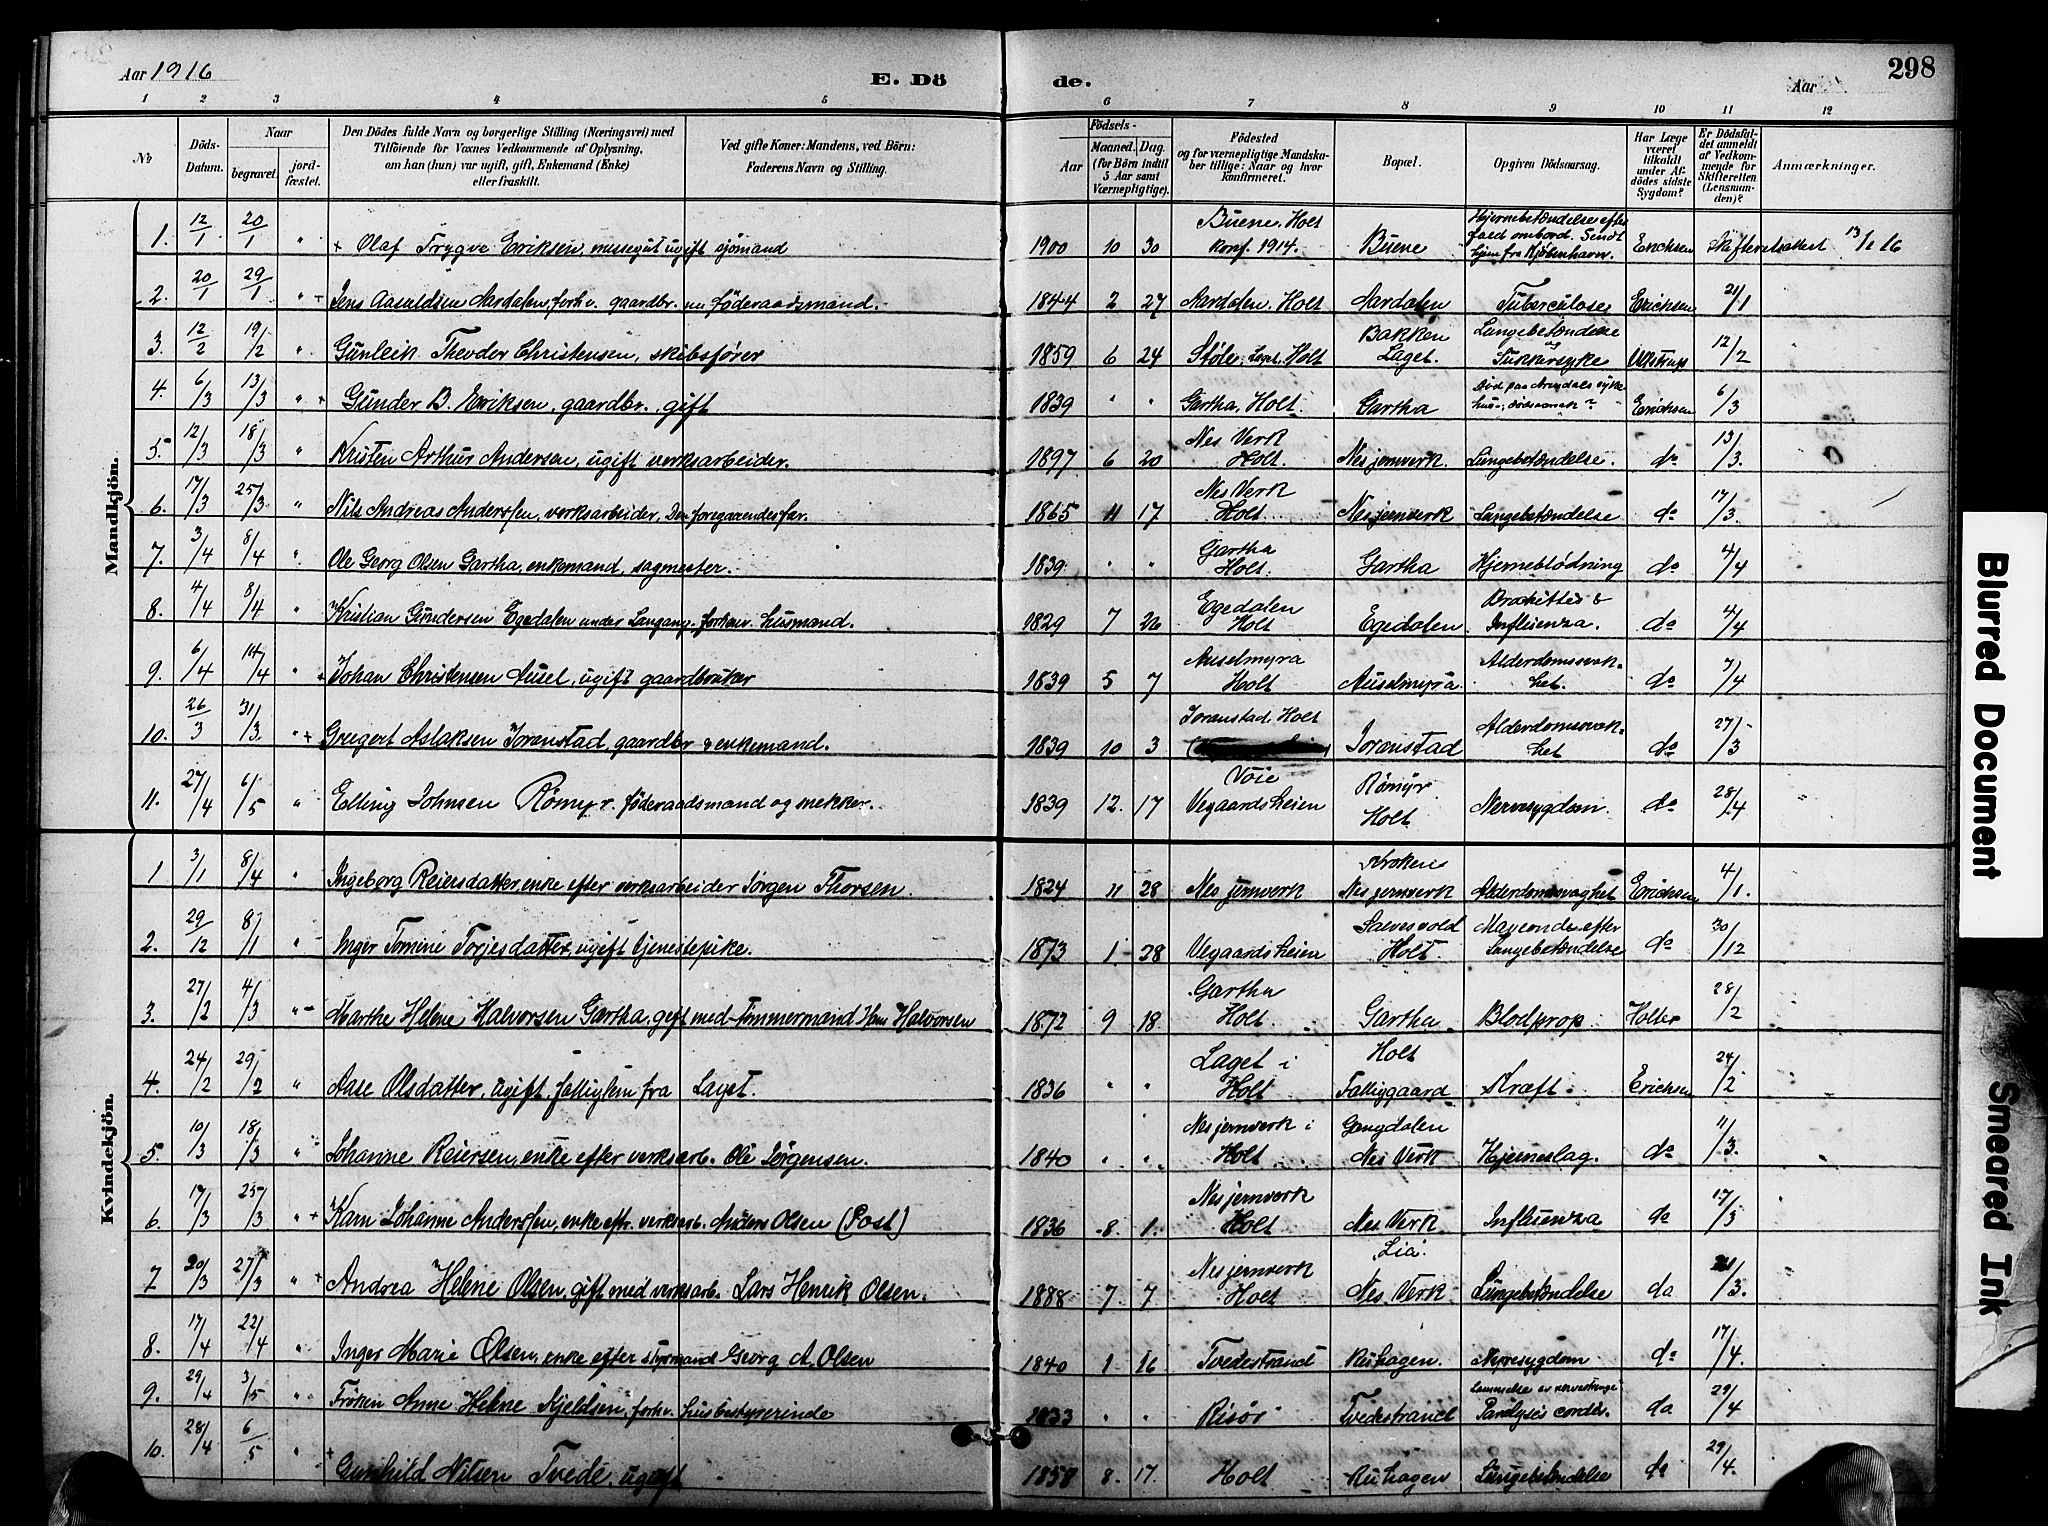 Aar 1916 E. Dö de. Aar 298
1 2 3 4 5 6 7 8 9 10 11 12
No Döds-Datum. Naar begravet. jord-fæstet. Den Dödes fulde Navn og borgerlige Stilling (Næringsvei) med Tilföiende for Voxnes Vedkommende af Oplysning, om han (hun) var ugift, gift, Enkemand (Enke) eller fraskilt. Ved gifte Koner: Mandens, ved Börn: Faderens Navn og Stilling. Födsels- Aar Maaned. Dag. (for Börn indtil 5 Aar samt Værnepligtige). Födested og for værnepligtige Mandskaber tillige: Naar og hvor konfirmeret. Bopæl. Opgiven Dödsaarsag. Har Læge været tilkaldt under Afdödes sidste Sygdom? Er Dödsfaldet anmeldt af Vedkommende for Skifteretten (Lensmanden)? Anmærkninger.
Mandkjön.
1. 12/1 20/1 " + Olaf Trygve Eriksen, messegut ugift sjömand 1900 10 30 Buene, Holt Konf. 1914. Buene Hjernebetændelse efter fald ombord. Sendt hjem fra Kjøbenhavn. Erichsen Skifteretsattest 13/1 16
2. 20/1 29/1 " + Jens Aasuldsen Aardalen, forhv. gaardbr. nu föderaadsmand. 1844 2 27 Aardalen, Holt Aardalen Tuberculose Erichsen 21/1
3. 12/2 19/2 " Gunleik Theodor Christensen, skibsfører 1859 6 24 Støle, Laget, Holt Bakken Laget. Lungebetændelse og Sukkersyke 12/2
4. 6/3 13/3 " + Gunder B. Eriksen, gaardbr., gift 1839 " " Gartha, Holt. Gartha Död paa Arendals sykehus, dödsaarsak? Erichsen 6/3
5. 12/3 18/3 " Kristen Arthur Andersen, ugift verksarbeider. 1897 6 20 Nes Verk Holt. Nes jernverk. Lungebetændelse. do 13/3.
6. 17/3 25/3 " Nils Andreas Anderssen, verksarbeider. Den foregaaendes far. 1865 11 17 Nes Verk Holt. Nes jernverk Lungebetændelse do 17/3.
7. 3/4 8/4 " Ole Georg Olsen Gartha, enkemand, sagmester. 1839. " " Gartha Holt. Gartha Hjerneblödning do 4/4
8. 4/4 8/4 " Kristian Gundersen Egedalen under Langang. forhenv. husmand. 1829 7 26 Egedalen Holt Egedalen Influenza. do 4/4
9. 6/4 14/4 " + Johan Christensen Ausel, ugift gaardbruker 1839 5 7 Auselmyra Holt Auselmyra. Alderdomssvakhet. do 7/4
10. 26/3 31/3 " + Gregert Aslaksen Joranstad, gaardbr & enkemand. 1839 10 3 Joranstad, Holt Joranstad Alderdomssvakhet do 27/3
11. 27/4 6/5 " Elling Johnsen Römyr. föderaadsmand og snekker. 1839 12. 17 Voie Vegaardsheien Römyr Holt Nervesygdom. do 28/4 "
Kvindekjön.
1 3/1 8/4 " Ingeborg Reiersdatter, enke efter verksarbeider Jörgen Thorsen. 1824 11 28 Nes jernverk Kroken Nes jernverk Alderdomssvaghet Erichsen 4/1.
2. 29/12 8/1 " Inger Tomine Torjesdatter, ugift tjenestepike. 1873 1 28 Vegaardsheien Salvesvold Holt. Maveonde efter Lungebetændelse do 30/12
3. 27/2 4/3 " Marthe Helene Halvorsen Gartha, gift med tömmermand Halvorsen 1872 9 18 Gartha Holt. Gartha Blodprop Holter 28/2
4. 24/2 29/2 " Aase Olsdatter, ugift, fattiglem fra Laget. 1836 " " Laget i Holt Holt Fattiggaard Kræft. Erichsen 24/2
5. 10/3 18/3 " Johanne Reiersen, enke efter verksarb. Ole Jörgensen. 1840 " " Nes jernverk i Holt Gangdalen Nes Verk Hjerneslag. do 11/3.
6. 17/3 25/3 " + Karn Johanne Anderssen, enke eftr. verksarb. Anders Olsen (Post) 1836 8. 1. Nes jernverk Holt Nes Verk Influenza do 17/3 "
7 20/3 27/3 " + Andrea Helene Olsen, gift med verksarb. Lars Henrik Olsen. 1888 7 7 Nes jernverk Holt Lia. Nes Verk Lungebetændelse do 21/3.
8. 17/4 22/4 " Inger Marie Olsen, enke efter styrmand Georg A. Olsen 1840 1 16 Tvedestrand Ruhagen. Nyresygdom do 17/4.
9. 29/4 3/5 " Fröken Anne Helene Kjeldsen, forhv. husbestyrerinde 1833 " " Risör Tvedestrand Lammelse av nervestrenge Paralysis cordis. do 29/4
10. 28/4 6/5 " + Gunhild Nilsen Tvede, ugift 1858 8. 17. Holt Ruhagen Lungebetændelse do 29/4.
Blurred Document
Smeared Ink